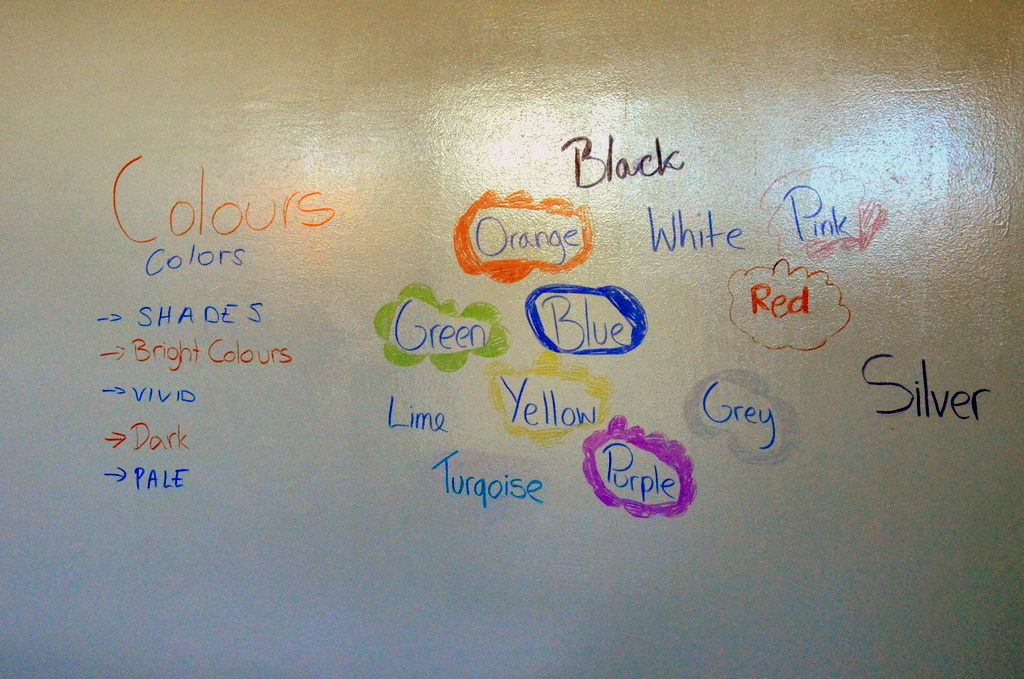 Colours
Colors
→ SHADES
→ Bright Colours
→ VIVID
→ Dark
→ PALE
Black
Orange
White
Pink
Green
Blue
Red
Lime
Yellow
Grey
Silver
Turqoise
Purple